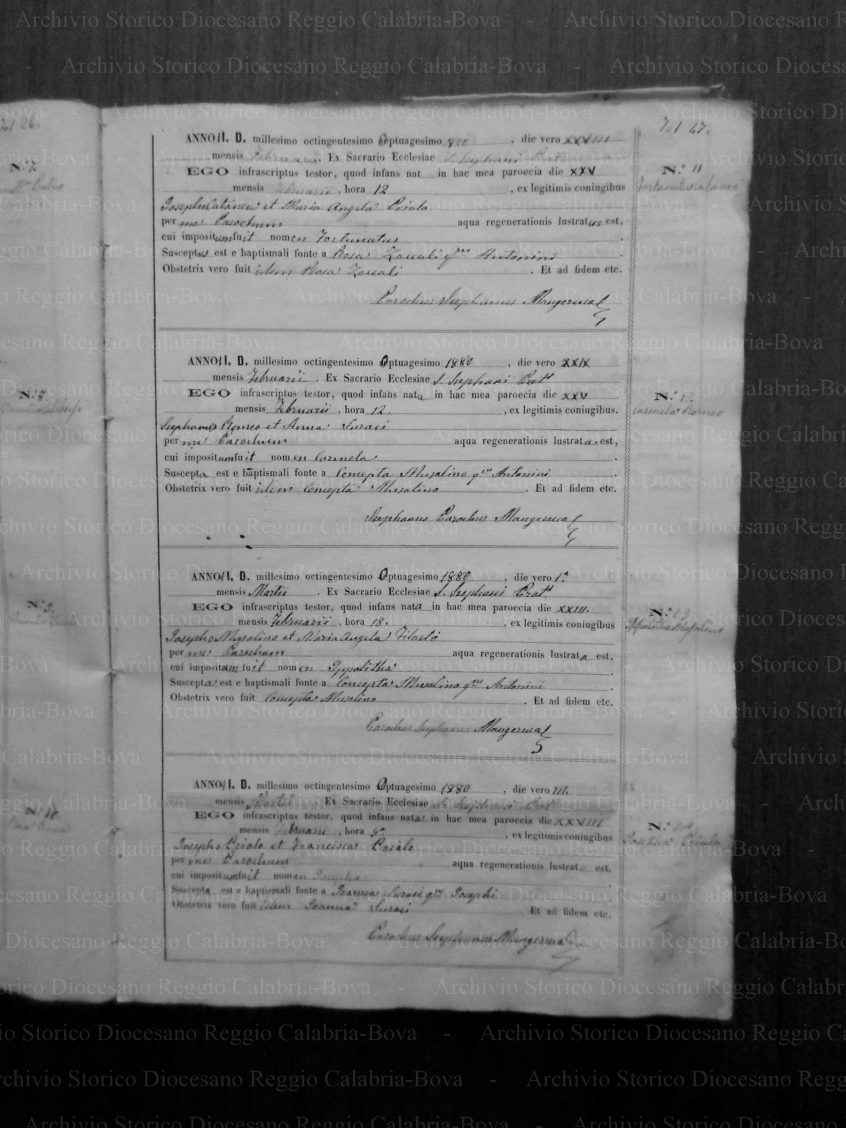 Archivio Storico Diocesano Reggio Calabria-Bova
Fol 26.
Fol 27.
N.° 7
N.° 8
N.° 9
N.° 10
ANNO I. D. millesimo octingentesimo Optuagesimo 880, die vero XXVIII
mensis Februarii. Ex Sacrario Ecclesiae S. Stephani Prot.
EGO infrascriptus testor, quod infans nat in hac mea paroecia die XXV
mensis Februarii, hora 12, ex legitimis coniugibus
Joseph Catanea et Maria Angela Criolo
per me Parochum aqua regenerationis lustratus est,
cui impositum fuit nomen Fortunatus.
Susceptus est e baptismali fonte a Rosa Zoccali qm Antonini
Obstetrix vero fuit idem Rosa Zoccali. Et ad fidem etc.
Parochus Stephanus Mangeruca
N.° 11
Fortunatus Catanea
ANNO I. D. millesimo octingentesimo Optuagesimo 1880, die vero XXIX
mensis Februarii. Ex Sacrario Ecclesiae S. Stephani Prot.
EGO infrascriptus testor, quod infans nata in hac mea paroecia die XXV
mensis Februarii, hora 12, ex legitimis coniugibus.
Stephanus Romeo et Anna Suraci
per me Parochum aqua regenerationis lustrata est,
cui impositum fuit nomen Carmela.
Suscepta est e baptismali fonte a Concepta Musolino qm Antonini.
Obstetrix vero fuit idem Concepta Musolino. Et ad fidem etc.
Stephanus Parochus Mangeruca
N.° 12
Carmela Romeo
ANNO I. D. millesimo octingentesimo Optuagesimo 1880, die vero 1°
mensis Martii. Ex Sacrario Ecclesiae S. Stephani Prot.
EGO infrascriptus testor, quod infans nata in hac mea paroecia die XXIII.
mensis Februarii, hora 18., ex legitimis coniugibus
Joseph Musolino et Maria Angela
per me Parochum aqua regenerationis lustrata est,
cui impositum fuit nomen Ippolitha
Suscepta est e baptismali fonte a Concepta Musolino qm Antonini.
Obstetrix vero fuit Concepta Musolino. Et ad fidem etc.
Parochus Stephanus Mangeruca
N.° 13
Musolino
ANNO I. D. millesimo octingentesimo Optuagesimo 1880, die vero III.
mensis Martii. Ex Sacrario Ecclesiae S. Stephani Prot.
EGO infrascriptus testor, quod infans nata in hac mea paroecia die XXVIII
mensis Februarii, hora 9a, ex legitimis coniugibus
Joseph Criolo et Francisca Criolo
per me Parochum aqua regenerationis lustrata est,
cui impositum fuit nomen Josepha
Suscepta est e baptismali fonte a Joanna Suraci qm Josephi
Obstetrix vero fuit idem Joanna Suraci. Et ad fidem etc.
Parochus Stephanus Mangeruca
N.° 14
Josepha Criolo